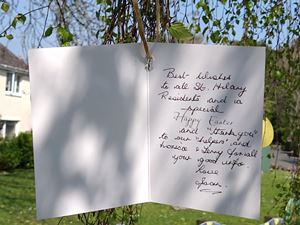 Best Wishes
to all St. Hilary
Residents and a
special
Happy Easter
and "thank you"
to our "helpers" and
& Jenny for all
your good
love